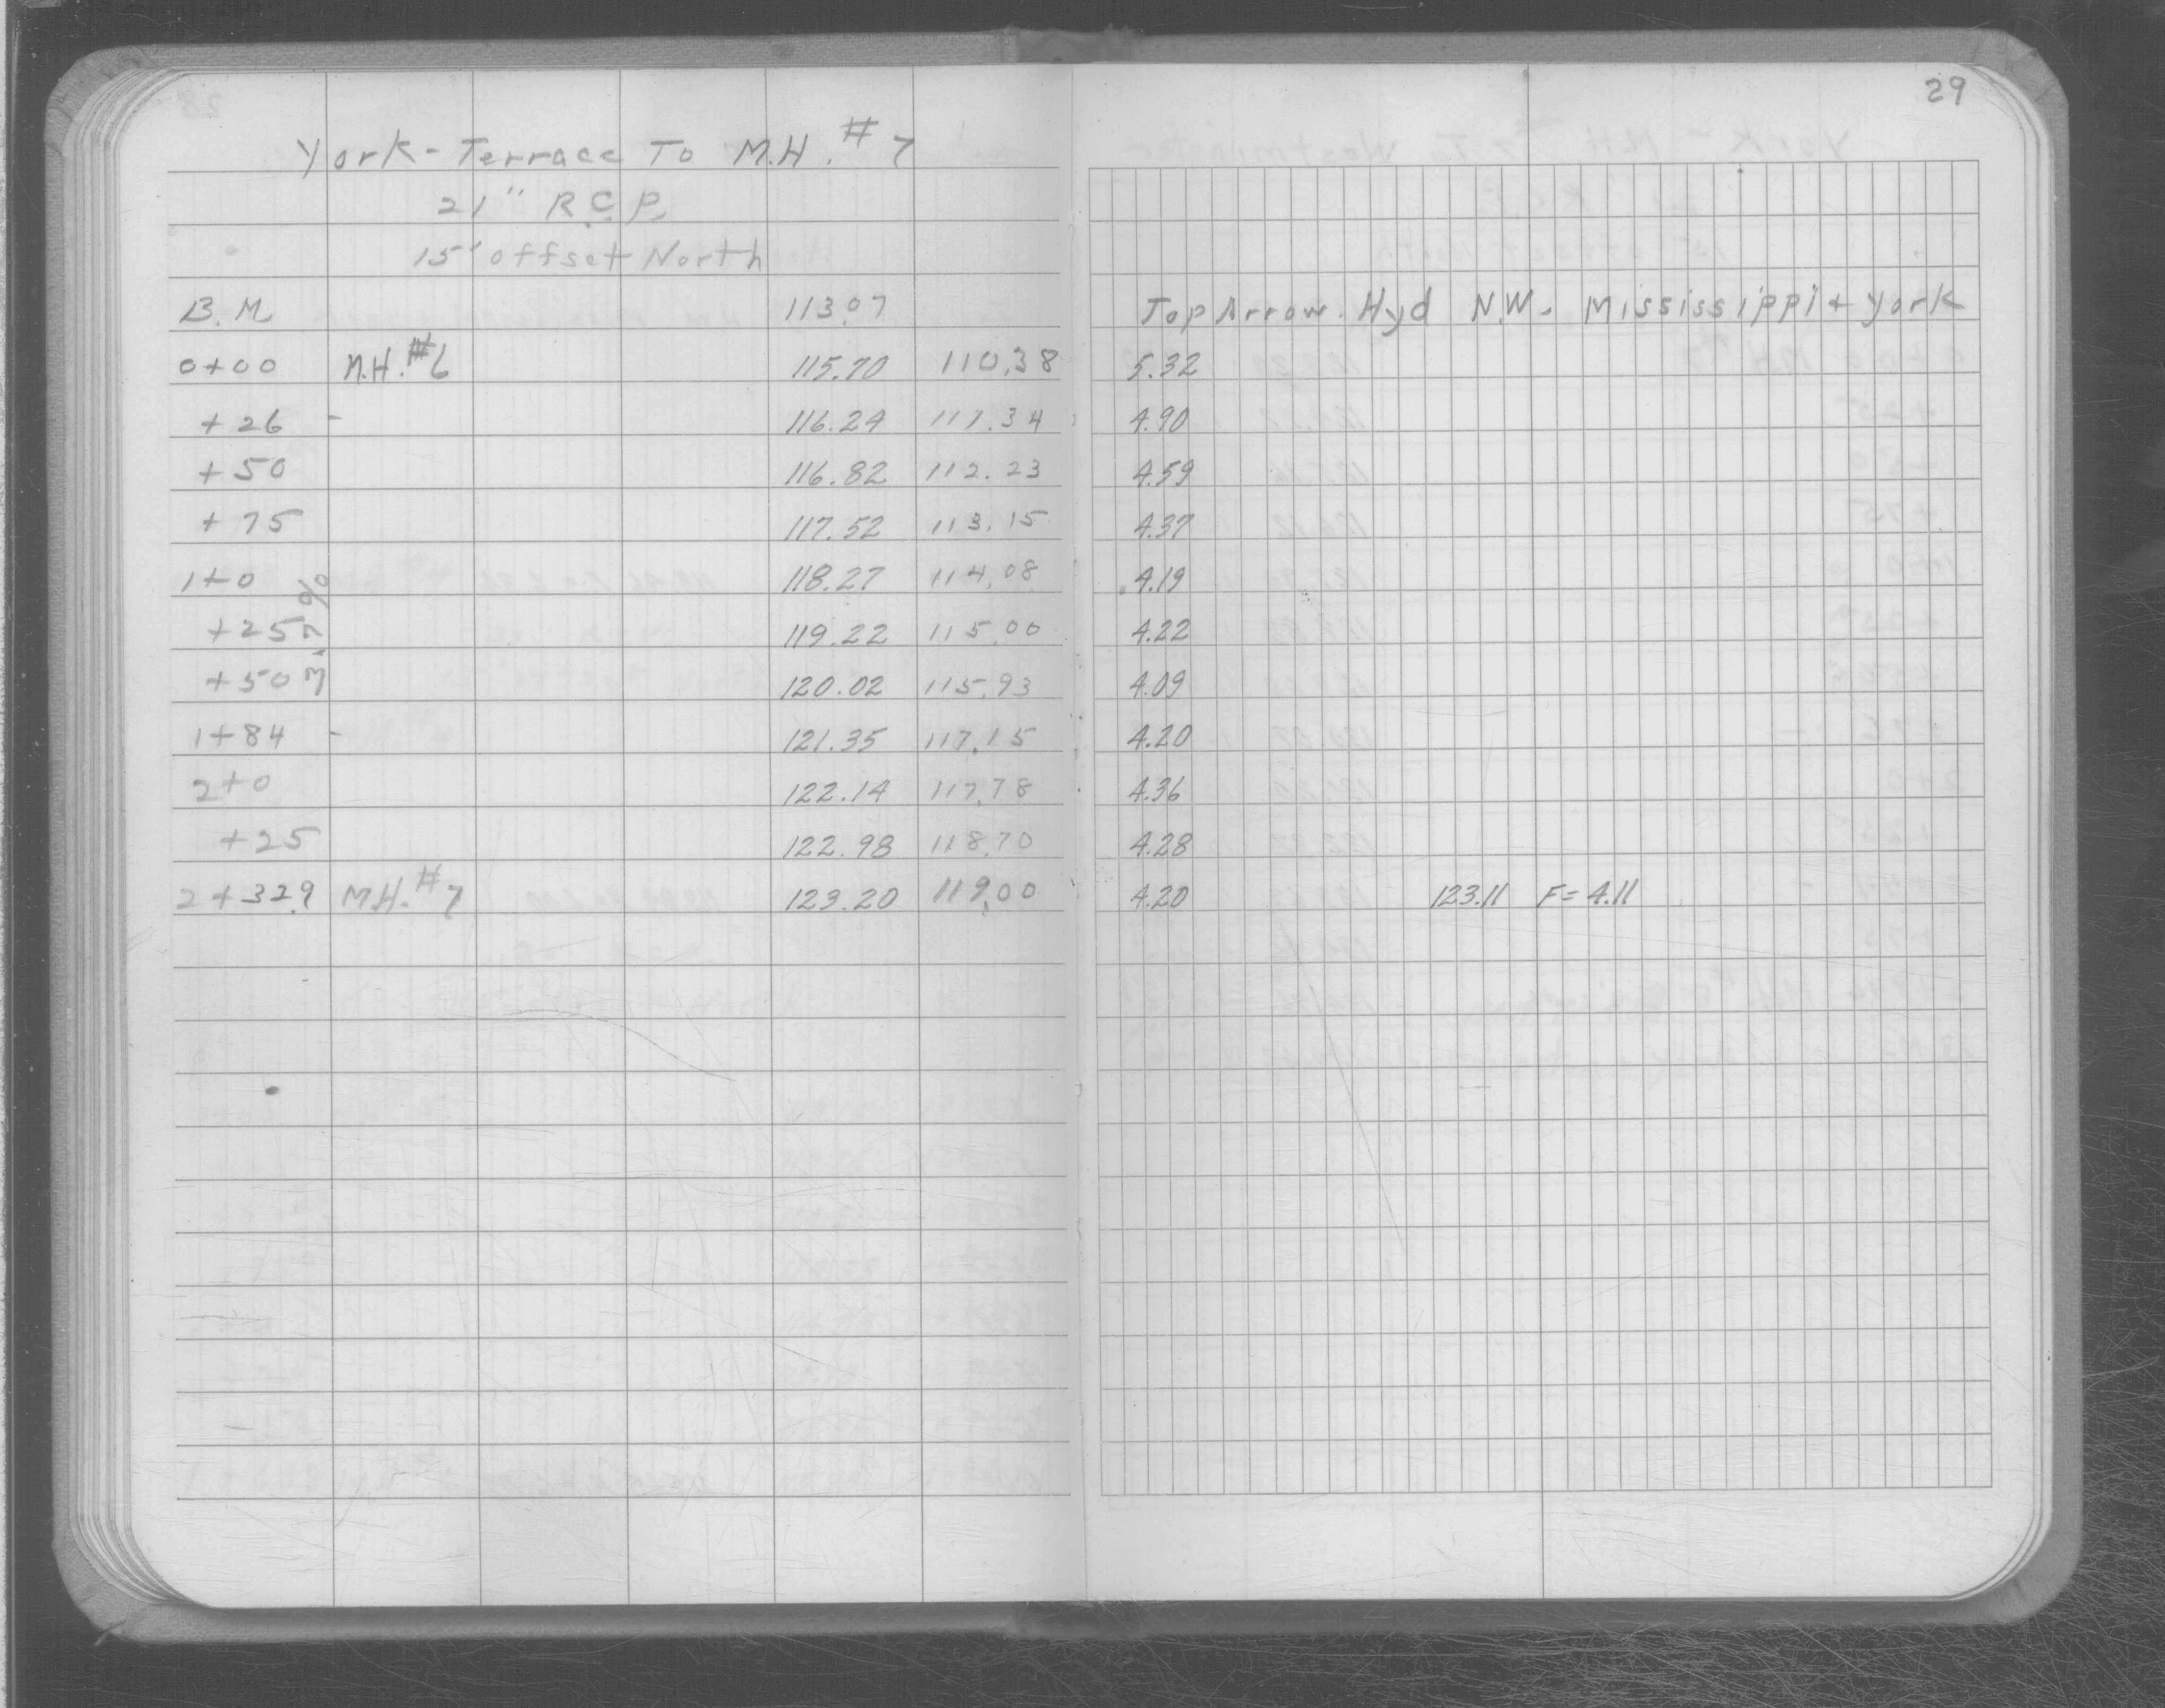 29
York - Terrace To M.H. #7
21" R.C.P.
15' offset North
B.M. 113.07 Top Arrow. Hyd N.W. Mississippi + York
0+00 M.H. #6 115.70 110.38 5.32
+26 - 116.24 111.34 4.90
+50 116.82 112.23 4.59
+75 117.52 113.15 4.37
1+0 118.27 114.08 4.19
+25 119.22 115.00 4.22
+50 120.02 115.93 4.09
1+84 - 121.35 117.15 4.20
2+0 122.14 117.78 4.36
+25 122.98 118.70 4.28
2+32.9 M.H. #7 123.20 119.00 4.20 123.11 F=4.11